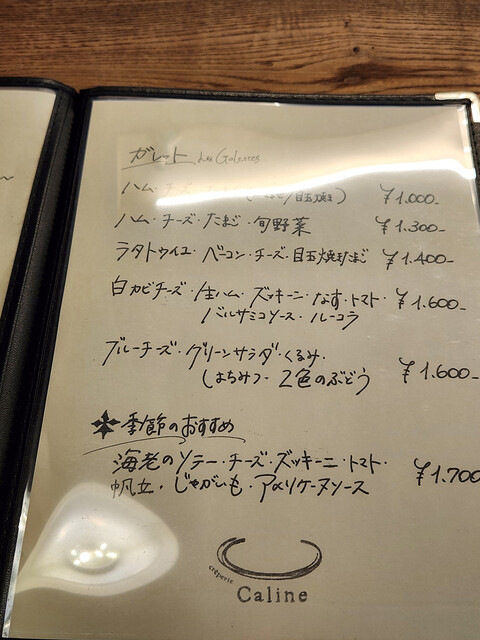 ガレット Les Galettes
ハム・チーズ 目玉焼き) ¥1.000-
ハム・チーズ・たまご・旬野菜 ¥1.300-
ラタトゥイユ・ベーコン・チーズ・目玉焼きたまご ¥1.400-
白カビチーズ・生ハム・ズッキーニ・なす・トマト・ ¥1.600-
バルサミコソース・ルーコラ
ブルーチーズ・グリーンサラダ・くるみ・
はちみつ・2色のぶどう ¥1.600-
季節のおすすめ
海老のソテー・チーズ・ズッキーニ・トマト・
帆立・じゃがいも・アメリケーヌソース ¥1.700
crêperie
Caline